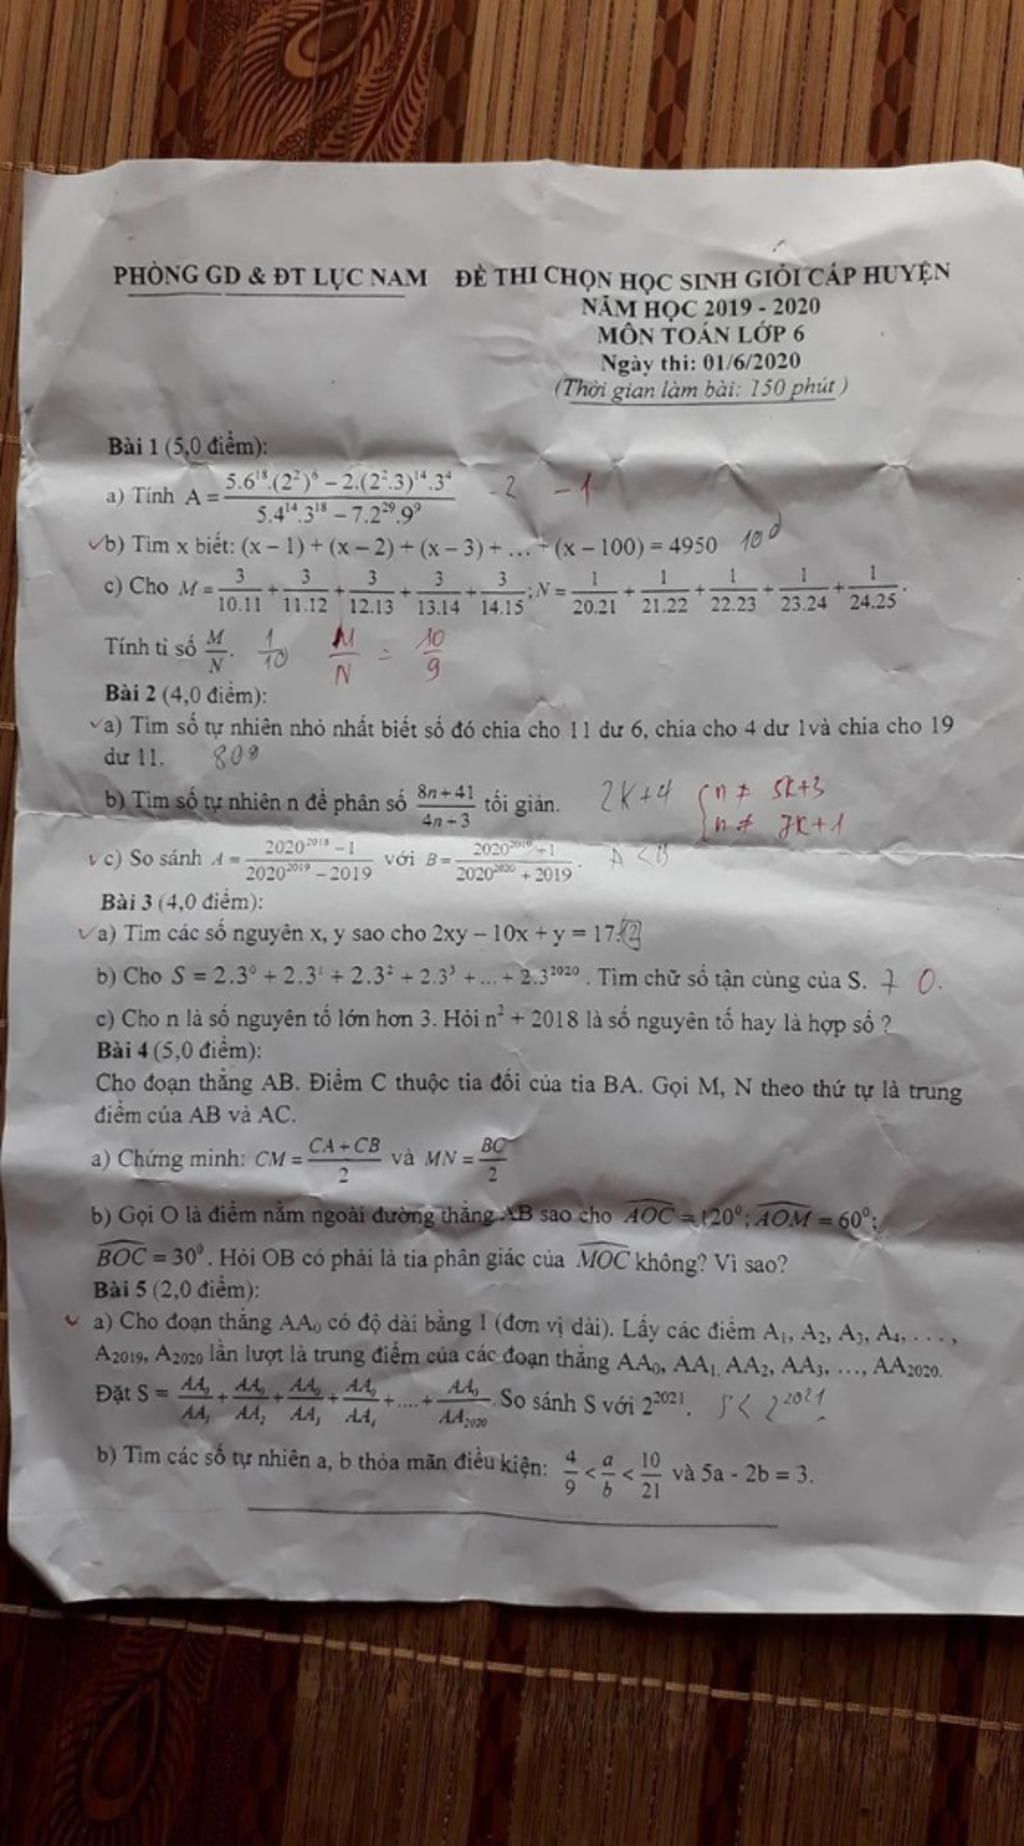 PHÒNG GD & ĐT LỤC NAM ĐỀ THI CHỌN HỌC SINH GIỎI CẤP HUYỆN
NĂM HỌC 2019 - 2020
MÔN TOÁN LỚP 6
Ngày thi: 01/6/2020
(Thời gian làm bài: 150 phút )
Bài 1 (5,0 điểm):
a) Tính A = (5.6¹⁸.(2²)⁶ − 2.(2².3)¹⁴.3⁴)/(5.4¹⁴.3¹⁸ − 7.2²⁹.9⁹) -2 -1
b) Tìm x biết: (x − 1) + (x − 2) + (x − 3) + ... + (x − 100) = 4950 100
c) Cho M = 3/10.11 + 3/11.12 + 3/12.13 + 3/13.14 + 3/14.15; N = 1/20.21 + 1/21.22 + 1/22.23 + 1/23.24 + 1/24.25.
Tính tỉ số M/N. 1/10 M/N = 10/9
Bài 2 (4,0 điểm):
a) Tìm số tự nhiên nhỏ nhất biết số đó chia cho 11 dư 6, chia cho 4 dư 1và chia cho 19
dư 11. 809
b) Tìm số tự nhiên n để phân số (8n + 41)/(4n + 3) tối giản. 2k+4 { n ≠ 5k+3
n ≠ 7k+1
c) So sánh A = (2020²⁰¹⁸ − 1)/(2020²⁰¹⁹ − 2019) với B = (2020²⁰¹⁹ + 1)/(2020²⁰²⁰ + 2019). A < B
Bài 3 (4,0 điểm):
a) Tìm các số nguyên x, y sao cho 2xy − 10x + y = 17.
b) Cho S = 2.3⁰ + 2.3¹ + 2.3² + 2.3³ + ... + 2.3²⁰²⁰. Tìm chữ số tận cùng của S. 7 0.
c) Cho n là số nguyên tố lớn hơn 3. Hỏi n² + 2018 là số nguyên tố hay là hợp số ?
Bài 4 (5,0 điểm):
Cho đoạn thẳng AB. Điểm C thuộc tia đối của tia BA. Gọi M, N theo thứ tự là trung
điểm của AB và AC.
a) Chứng minh: CM = (CA + CB)/2 và MN = BC/2
b) Gọi O là điểm nằm ngoài đường thẳng AB sao cho AOC = 120⁰; AOM = 60⁰;
BOC = 30⁰. Hỏi OB có phải là tia phân giác của MOC không? Vì sao?
Bài 5 (2,0 điểm):
a) Cho đoạn thẳng AA₀ có độ dài bằng 1 (đơn vị dài). Lấy các điểm A₁, A₂, A₃, A₄, . . . ,
A₂₀₁₉, A₂₀₂₀ lần lượt là trung điểm của các đoạn thẳng AA₀, AA₁, AA₂, AA₃, ..., AA₂₀₂₀.
Đặt S = AA₀/AA₁ + AA₀/AA₂ + AA₀/AA₃ + AA₀/AA₄ + .... + AA₀/AA₂₀₂₀. So sánh S với 2²⁰²¹. S < 2²⁰²¹
b) Tìm các số tự nhiên a, b thỏa mãn điều kiện: 4/9 < a/b < 10/21 và 5a - 2b = 3.